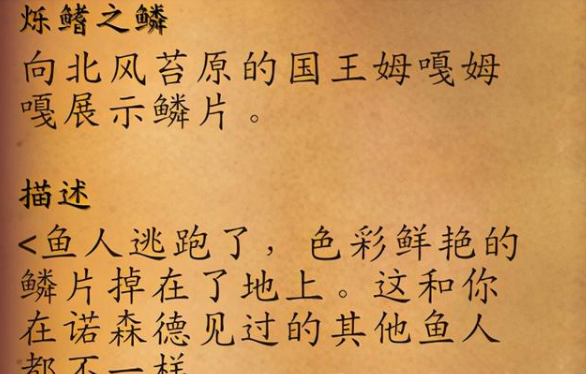 烁鳍之鳞
向北风苔原的国王姆嘎姆
嘎展示鳞片。
描述
<鱼人逃跑了，色彩鲜艳的
鳞片掉在了地上。这和你
在诺森德见过的其他鱼人
都不一样